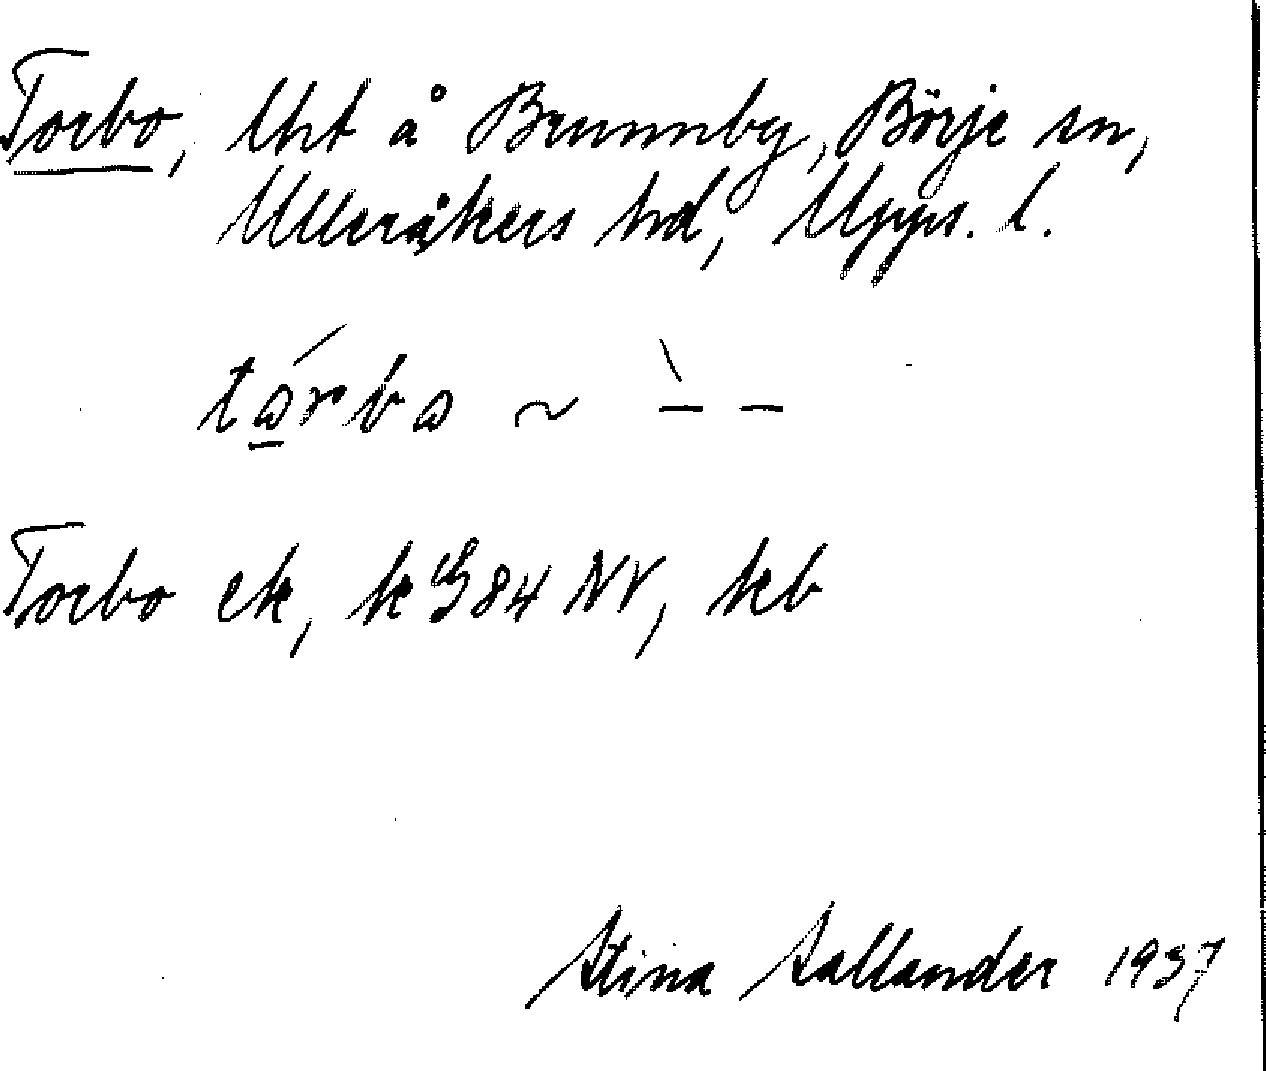 Torbo, lht å Brunnby, Börje sn,
Ulleråkers hd, Upps. l.
tárba ~ ̀– –
Torbo ek, k 984 NV, kb
Stina Sallander 1937